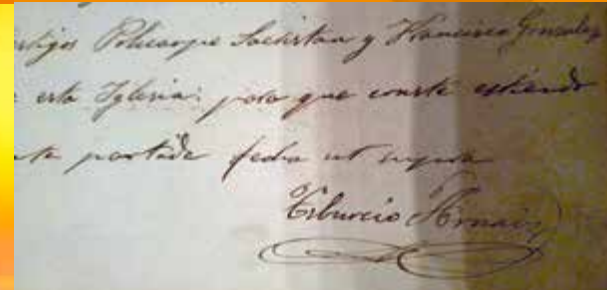 testigos Policarpo Sacristan y Francisco Gonzalez
esta Yglesia: para que conste estiendo
partida fecha ut supra
Tiburcio Arnaiz